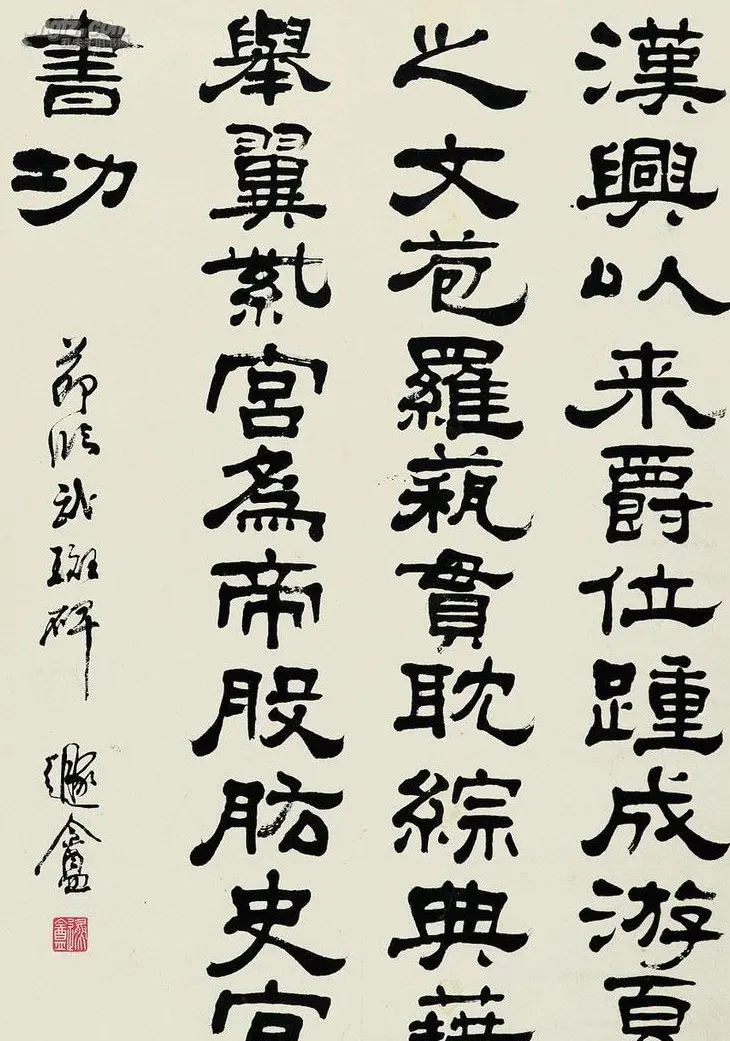 漢興以来爵位踵成游
之文苞羅蓺貫耽綜典
舉翼紫宮為帝股肱史官
書功
節臨武斑碑
邃盦